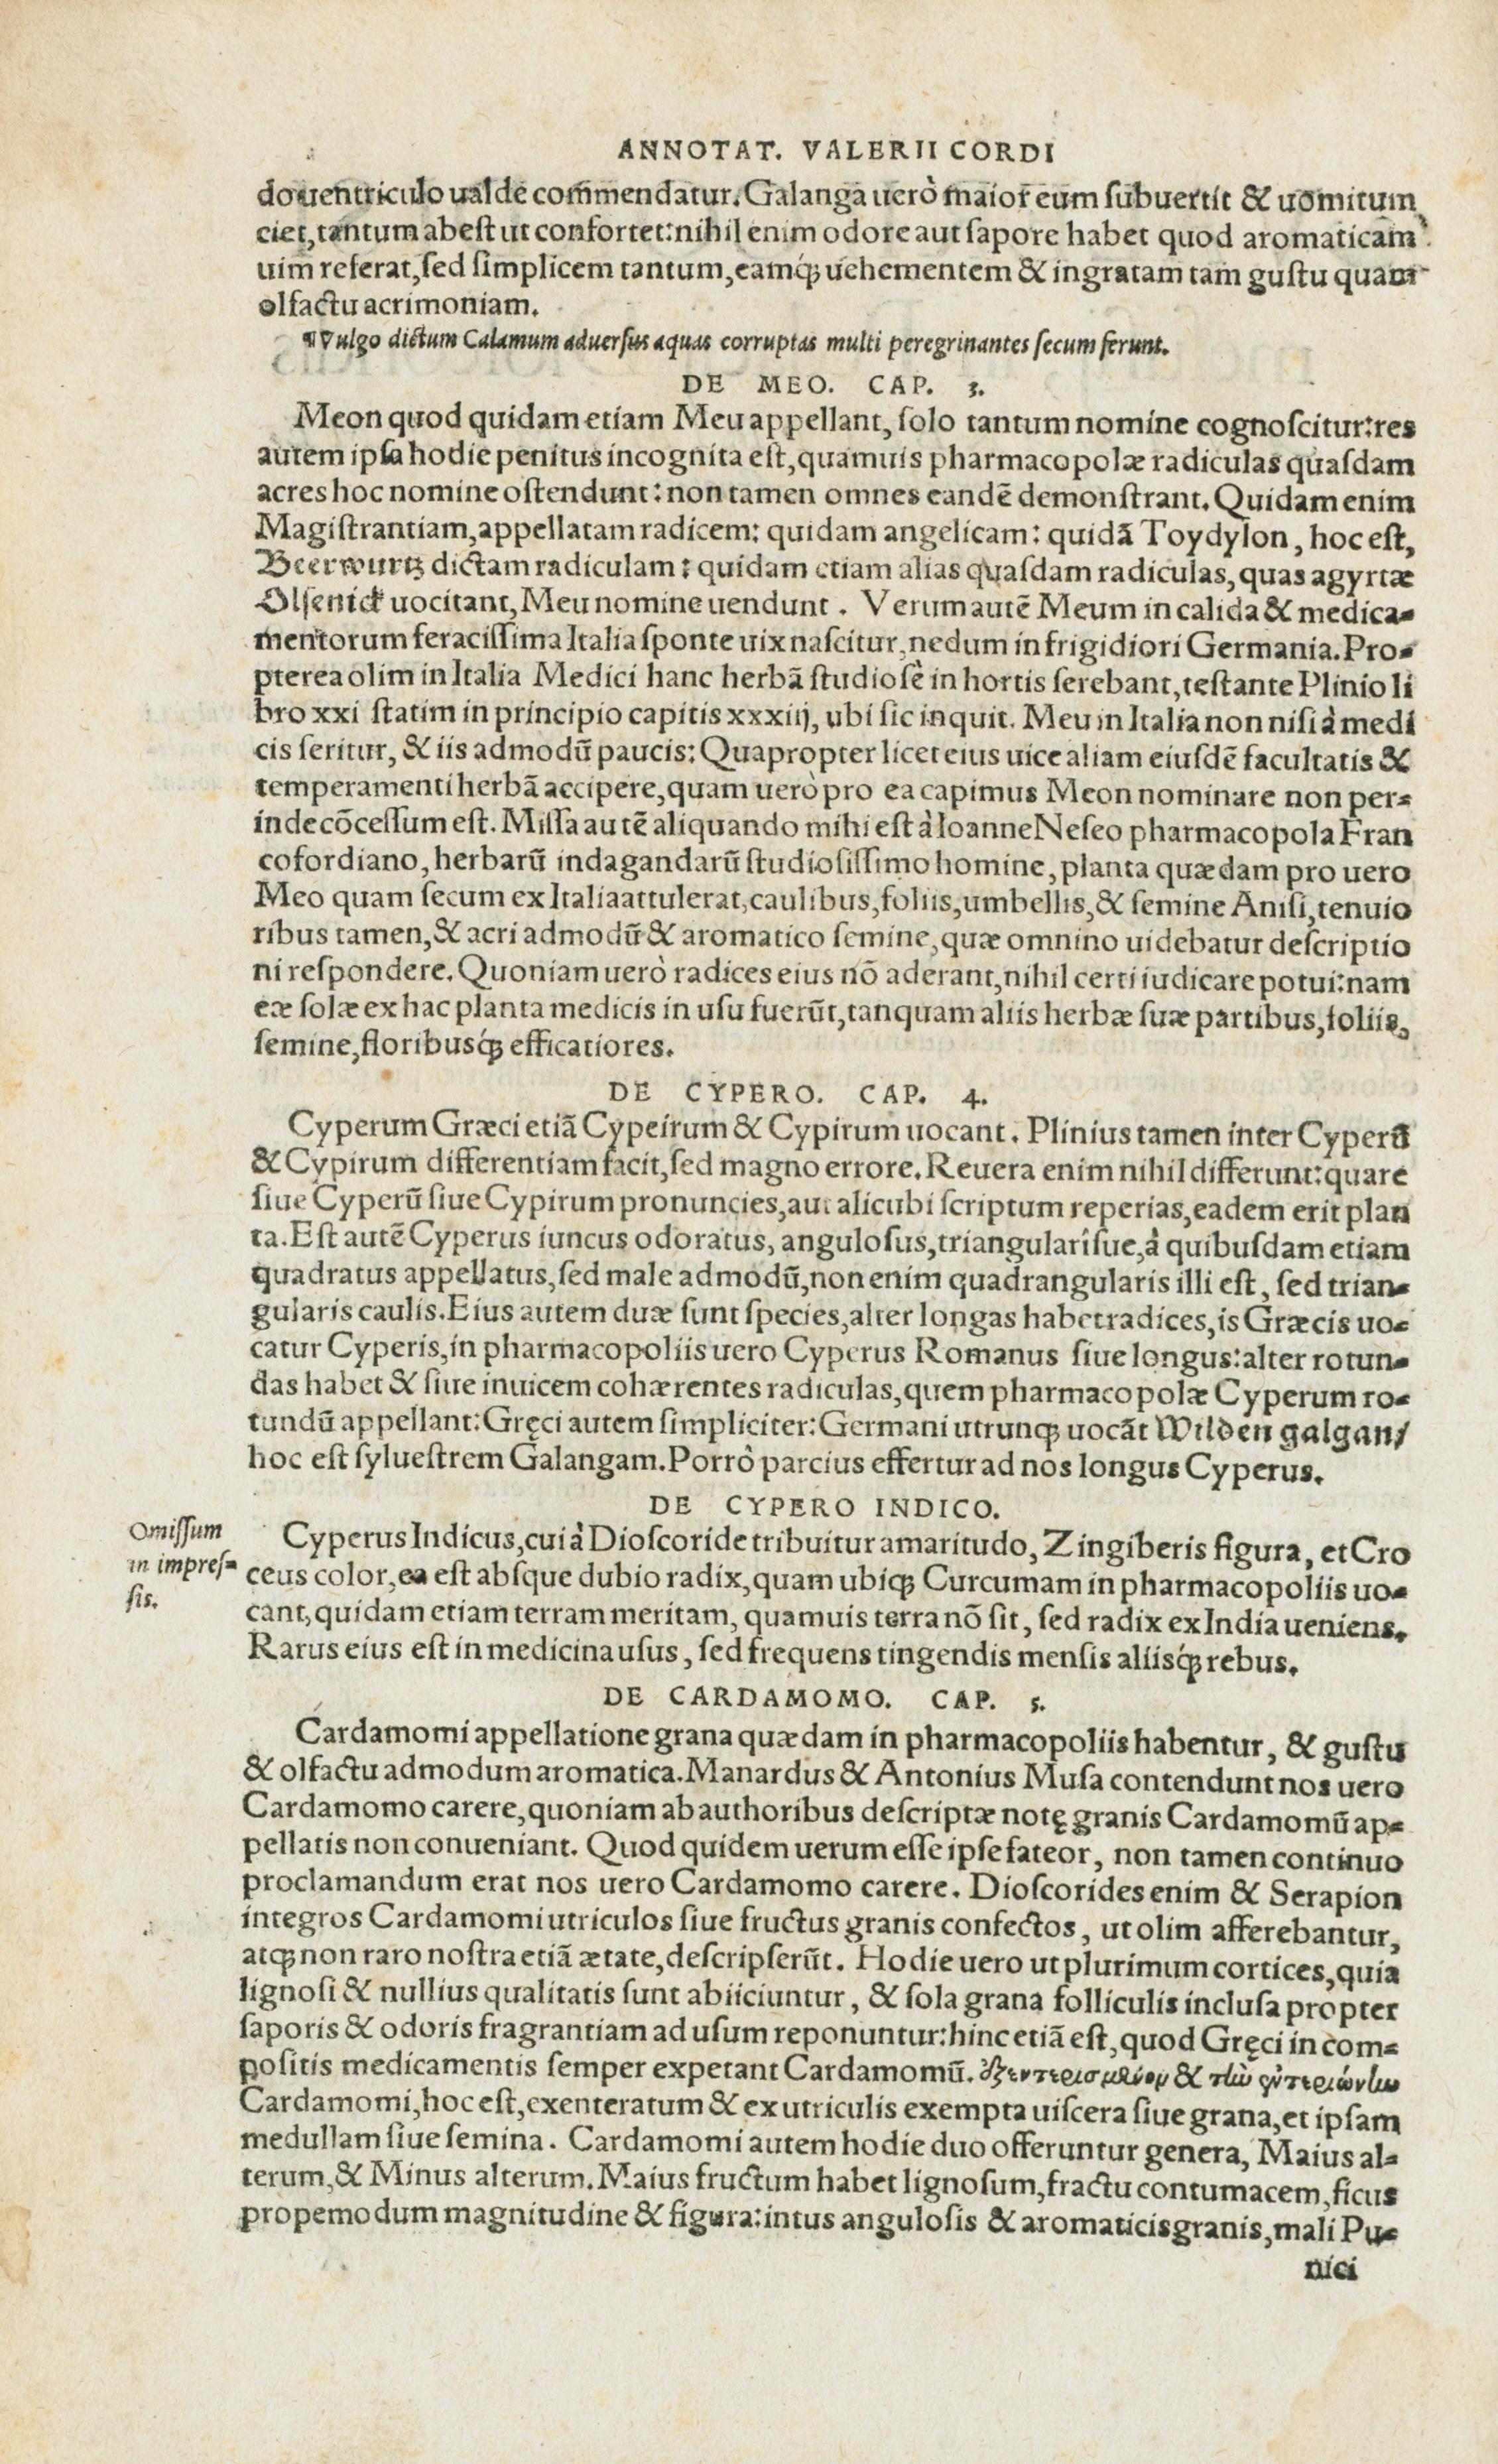 ANNOTAT. VALERII CORDI
do uentriculo ualde commendatur. Galanga uerò maior eum subuertit & uomitum
ciet, tantum abest ut confortet: nihil enim odore aut sapore habet quod aromaticam
uim referat, sed simplicem tantum, eamq́ꝫ uehementem & ingratam tam gustu quam
olfactu acrimoniam.
¶ Vulgo dictum Calamum aduersus aquas corruptas multi peregrinantes secum ferunt.
DE MEO. CAP. 3.
Meon quod quidam etiam Meu appellant, solo tantum nomine cognoscitur: res
autem ipsa hodie penitus incognita est, quamuis pharmacopolæ radiculas quasdam
acres hoc nomine ostendunt: non tamen omnes eandē demonstrant. Quidam enim
Magistrantiam, appellatam radicem: quidam angelicam: quidā Toydylon, hoc est,
Beerwurtz dictam radiculam: quidam etiam alias quasdam radiculas, quas agyrtæ
Olsenick uocitant, Meu nomine uendunt. Verum autē Meum in calida & medica-
mentorum feracissima Italia sponte uix nascitur, nedum in frigidiori Germania. Pro-
pterea olim in Italia Medici hanc herbā studiosè in hortis serebant, testante Plinio li
bro xxi statim in principio capitis xxxiij, ubi sic inquit. Meu in Italia non nisi à medi
cis seritur, & iis admodū paucis: Quapropter licet eius uice aliam eiusdē facultatis &
temperamenti herbā accipere, quam uerò pro ea capimus Meon nominare non per-
inde cōcessum est. Missa autē aliquando mihi est à Ioanne Neseo pharmacopola Fran
cofordiano, herbarū indagandarū studiosissimo homine, planta quædam pro uero
Meo quam secum ex Italia attulerat, caulibus, foliis, umbellis, & semine Anisi, tenuio
ribus tamen, & acri admodū & aromatico semine, quæ omnino uidebatur descriptio
ni respondere. Quoniam uerò radices eius nō aderant, nihil certi iudicare potui: nam
eæ solæ ex hac planta medicis in usu fuerūt, tanquam aliis herbæ suæ partibus, foliis,
semine, floribusq́ꝫ efficatiores.
DE CYPERO. CAP. 4.
Cyperum Græci etiā Cypeirum & Cypirum uocant. Plinius tamen inter Cyperū
& Cypirum differentiam facit, sed magno errore. Reuera enim nihil differunt: quare
siue Cyperū siue Cypirum pronuncies, aut alicubi scriptum reperias, eadem erit plan
ta. Est autē Cyperus iuncus odoratus, angulosus, triangularisue, à quibusdam etiam
quadratus appellatus, sed male admodū, non enim quadrangularis illi est, sed trian-
gularis caulis. Eius autem duæ sunt species, alter longas habet radices, is Græcis uo-
catur Cyperis, in pharmacopoliis uero Cyperus Romanus siue longus: alter rotun-
das habet & siue inuicem cohærentes radiculas, quem pharmacopolæ Cyperum ro-
tundū appellant: Gręci autem simpliciter: Germani utrunqꝫ uocāt Wilden galgan/
hoc est syluestrem Galangam. Porrò parcius effertur ad nos longus Cyperus.
DE CYPERO INDICO.
Omissum
in impres-
sis.
Cyperus Indicus, cui à Dioscoride tribuitur amaritudo, Zingiberis figura, et Cro
ceus color, ea est absque dubio radix, quam ubiqꝫ Curcumam in pharmacopoliis uo-
cant, quidam etiam terram meritam, quamuis terra nō sit, sed radix ex India ueniens.
Rarus eius est in medicina usus, sed frequens tingendis mensis aliisq́ꝫ rebus.
DE CARDAMOMO. CAP. 5.
Cardamomi appellatione grana quædam in pharmacopoliis habentur, & gustu
& olfactu admodum aromatica. Manardus & Antonius Musa contendunt nos uero
Cardamomo carere, quoniam ab authoribus descriptæ notę granis Cardamomū ap-
pellatis non conueniant. Quod quidem uerum esse ipse fateor, non tamen continuo
proclamandum erat nos uero Cardamomo carere. Dioscorides enim & Serapion
integros Cardamomi utriculos siue fructus granis confectos, ut olim afferebantur,
atqꝫ non raro nostra etiā ætate, descripserūt. Hodie uero ut plurimum cortices, quia
lignosi & nullius qualitatis sunt abiiciuntur, & sola grana folliculis inclusa propter
saporis & odoris fragrantiam ad usum reponuntur: hinc etiā est, quod Gręci in com-
positis medicamentis semper expetant Cardamomū. &
Cardamomi, hoc est, exenteratum & ex utriculis exempta uiscera siue grana, et ipsam
medullam siue semina. Cardamomi autem hodie duo offeruntur genera, Maius al-
terum, & Minus alterum. Maius fructum habet lignosum, fractu contumacem, ficus
propemodum magnitudine & figura: intus angulosis & aromaticis granis, mali Pu-
nici